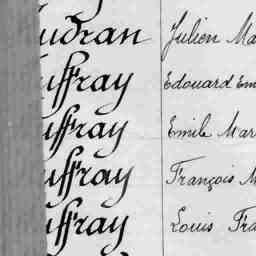 udran Julien Ma
uffray Edouard Em
uffray Emile Mar
uffray François M
uffray Louis Fra